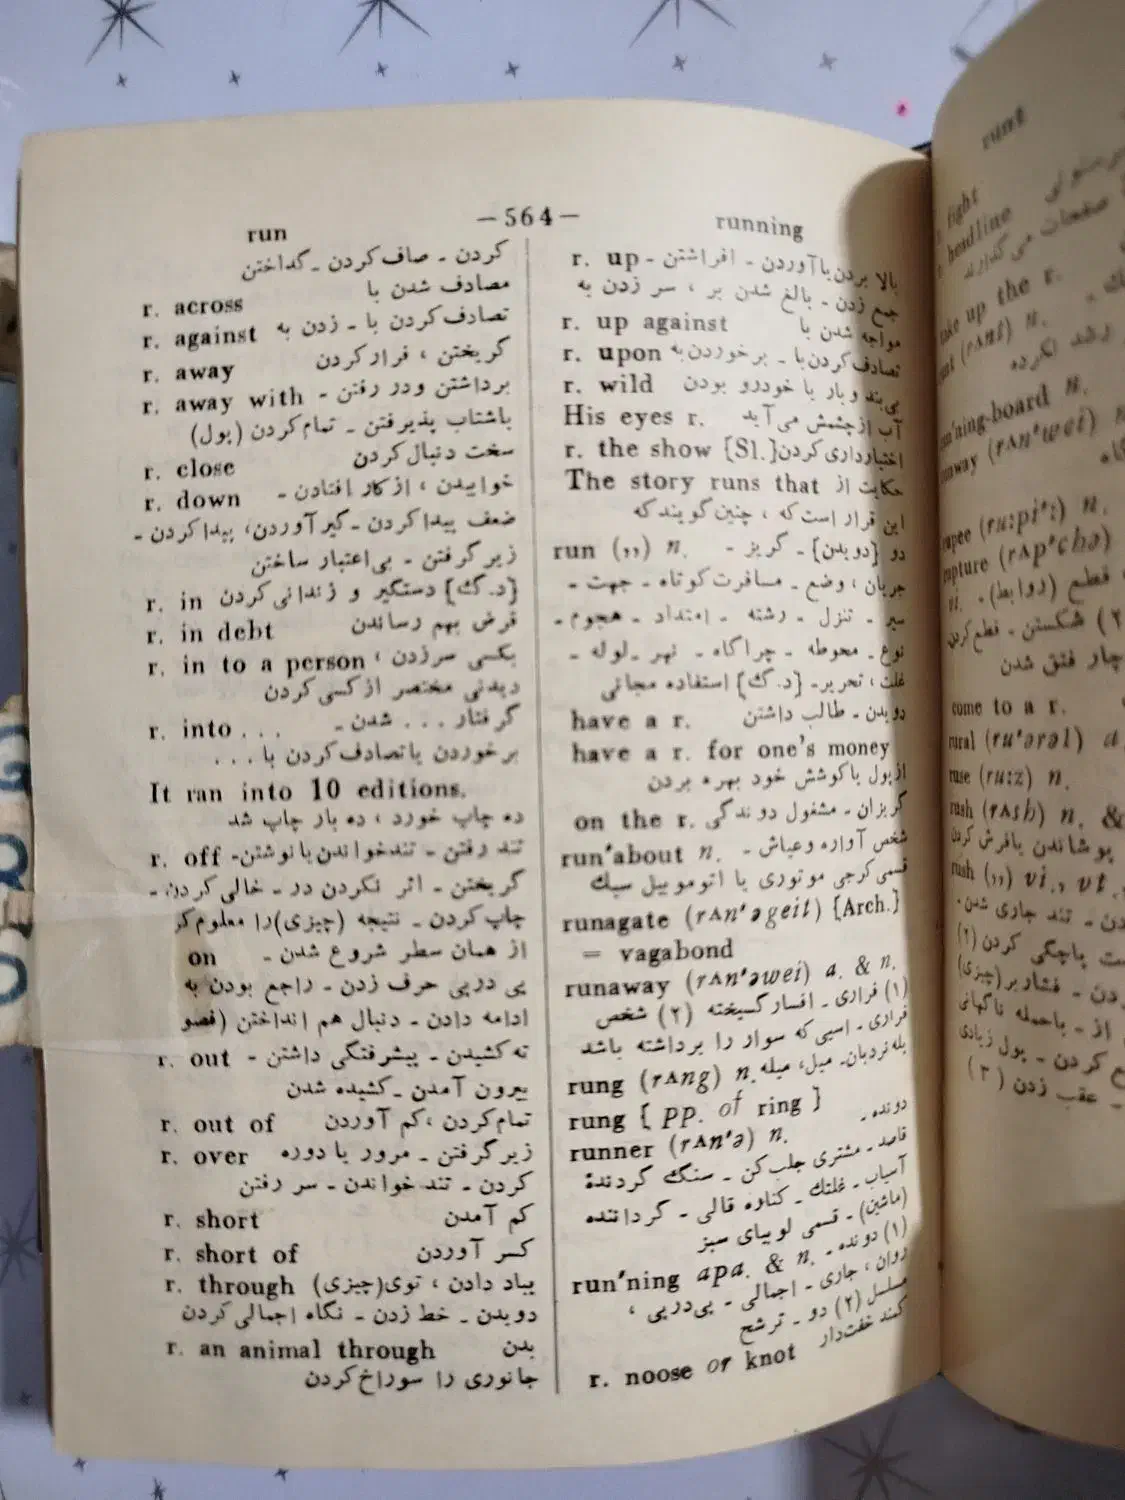 —564—
run
running
کردن ـ صاف کردن ـ گداختن
r. across مصادف شدن با
r. against تصادف کردن با ـ زدن به
r. away گریختن ، فرار کردن
r. away with برداشتن ودر رفتن ـ
باشتاب پذیرفتن ـ تمام کردن (پول)
r. close سخت دنبال کردن
r. down خوابیدن ، از کار افتادن ـ
ضعف پیدا کردن ـ گیر آوردن، پیدا کردن ـ
زیر گرفتن ـ بی‌اعتبار ساختن
r. in [د.گ] دستگیر و زندانی کردن
r. in debt قرض بهم رساندن
r. in to a person بکسی سر زدن ،
دیدنی مختصر از کسی کردن
r. into . . . گرفتار . . . شدن ـ
برخوردن یا تصادف کردن با . . .
It ran into 10 editions.
ده چاپ خورد ، ده بار چاپ شد
r. off تند رفتن ـ تند خواندن یا نوشتن ـ
گریختن ـ اثر نکردن در ـ خالی کردن ـ
چاپ کردن ـ نتیجه (چیزی) را معلوم کر
on از همان سطر شروع شدن ـ
پی درپی حرف زدن ـ راجع بودن به
ادامه دادن ـ دنبال هم انداختن
r. out ته کشیدن ـ پیشرفتگی داشتن ـ
بیرون آمدن ـ کشیده شدن
r. out of تمام کردن ، کم آوردن
r. over زیر گرفتن ـ مرور یا دوره
کردن ـ تند خواندن ـ سر رفتن
r. short کم آمدن
r. short of کسر آوردن
r. through بباد دادن ، توی (چیزی)
دویدن ـ خط زدن ـ نگاه اجمالی کردن
r. an animal through بدن
جانوری را سوراخ کردن
r. up بالا بردن یا آوردن ـ افراشتن ـ
جمع زدن ـ بالغ شدن بر ، سر زدن به
r. up against مواجه شدن با
r. upon تصادف کردن با ـ برخوردن به
r. wild بی‌بند و بار یا خودرو بودن
His eyes r. آب از چشمش می‌آید
r. the show [Sl.] اختیارداری کردن
The story runs that حکایت از
این قرار است که ، چنین گویند که
run (,,) n. دو [دویدن] ـ گریز ـ
جریان ، وضع ـ مسافرت کوتاه ـ جهت ـ
سیر ـ تنزل ـ رشته ـ امتداد ـ هجوم ـ
نوع ـ محوطه ـ چراگاه ـ نهر ـ لوله ـ
غلت ، تحریر ـ [د.گ] استفاده مجانی
have a r. دویدن ـ طالب داشتن
have a r. for one's money
از پول یا کوشش خود بهره بردن
on the r. گریزان ـ مشغول دوندگی
run'about n. شخص آواره و عیاش ـ
قسمی کرجی موتوری یا اتوموبیل سبک
runagate (rʌn'əgeit) [Arch.]
= vagabond
runaway (rʌn'əwei) a. & n.
(۱) فراری ـ افسار گسیخته (۲) شخص
فراری ـ اسبی که سوار را برداشته باشد
rung (rʌng) n. پله نردبان ـ میل، میله
rung [ pp. of ring ]
runner (rʌn'ə) n. دونده ـ
قاصد ـ مشتری جلب کن ـ سنگ گردندهٔ
آسیاب ـ غلتک ـ کناره قالی ـ گرداننده
(ماشین) ـ قسمی لوبیای سبز
run'ning apa. & n. (۱) دونده ـ
روان ، جاری ـ اجمالی ـ پی‌درپی ،
مسلسل (۲) دو ـ ترشح
r. noose or knot کمند خفت‌دار
runt
r. fight
r. headline
take up the r.
runt (rʌnt) n.
run'ning-board n.
runway (rʌn'wei) n.
rupee (ru:pi':) n.
rupture (rʌp'chə)
come to a r.
rural (ru'ərəl) a
ruse (ru:z) n.
rush (rʌsh) n. &
rush (,,) vi., vt.